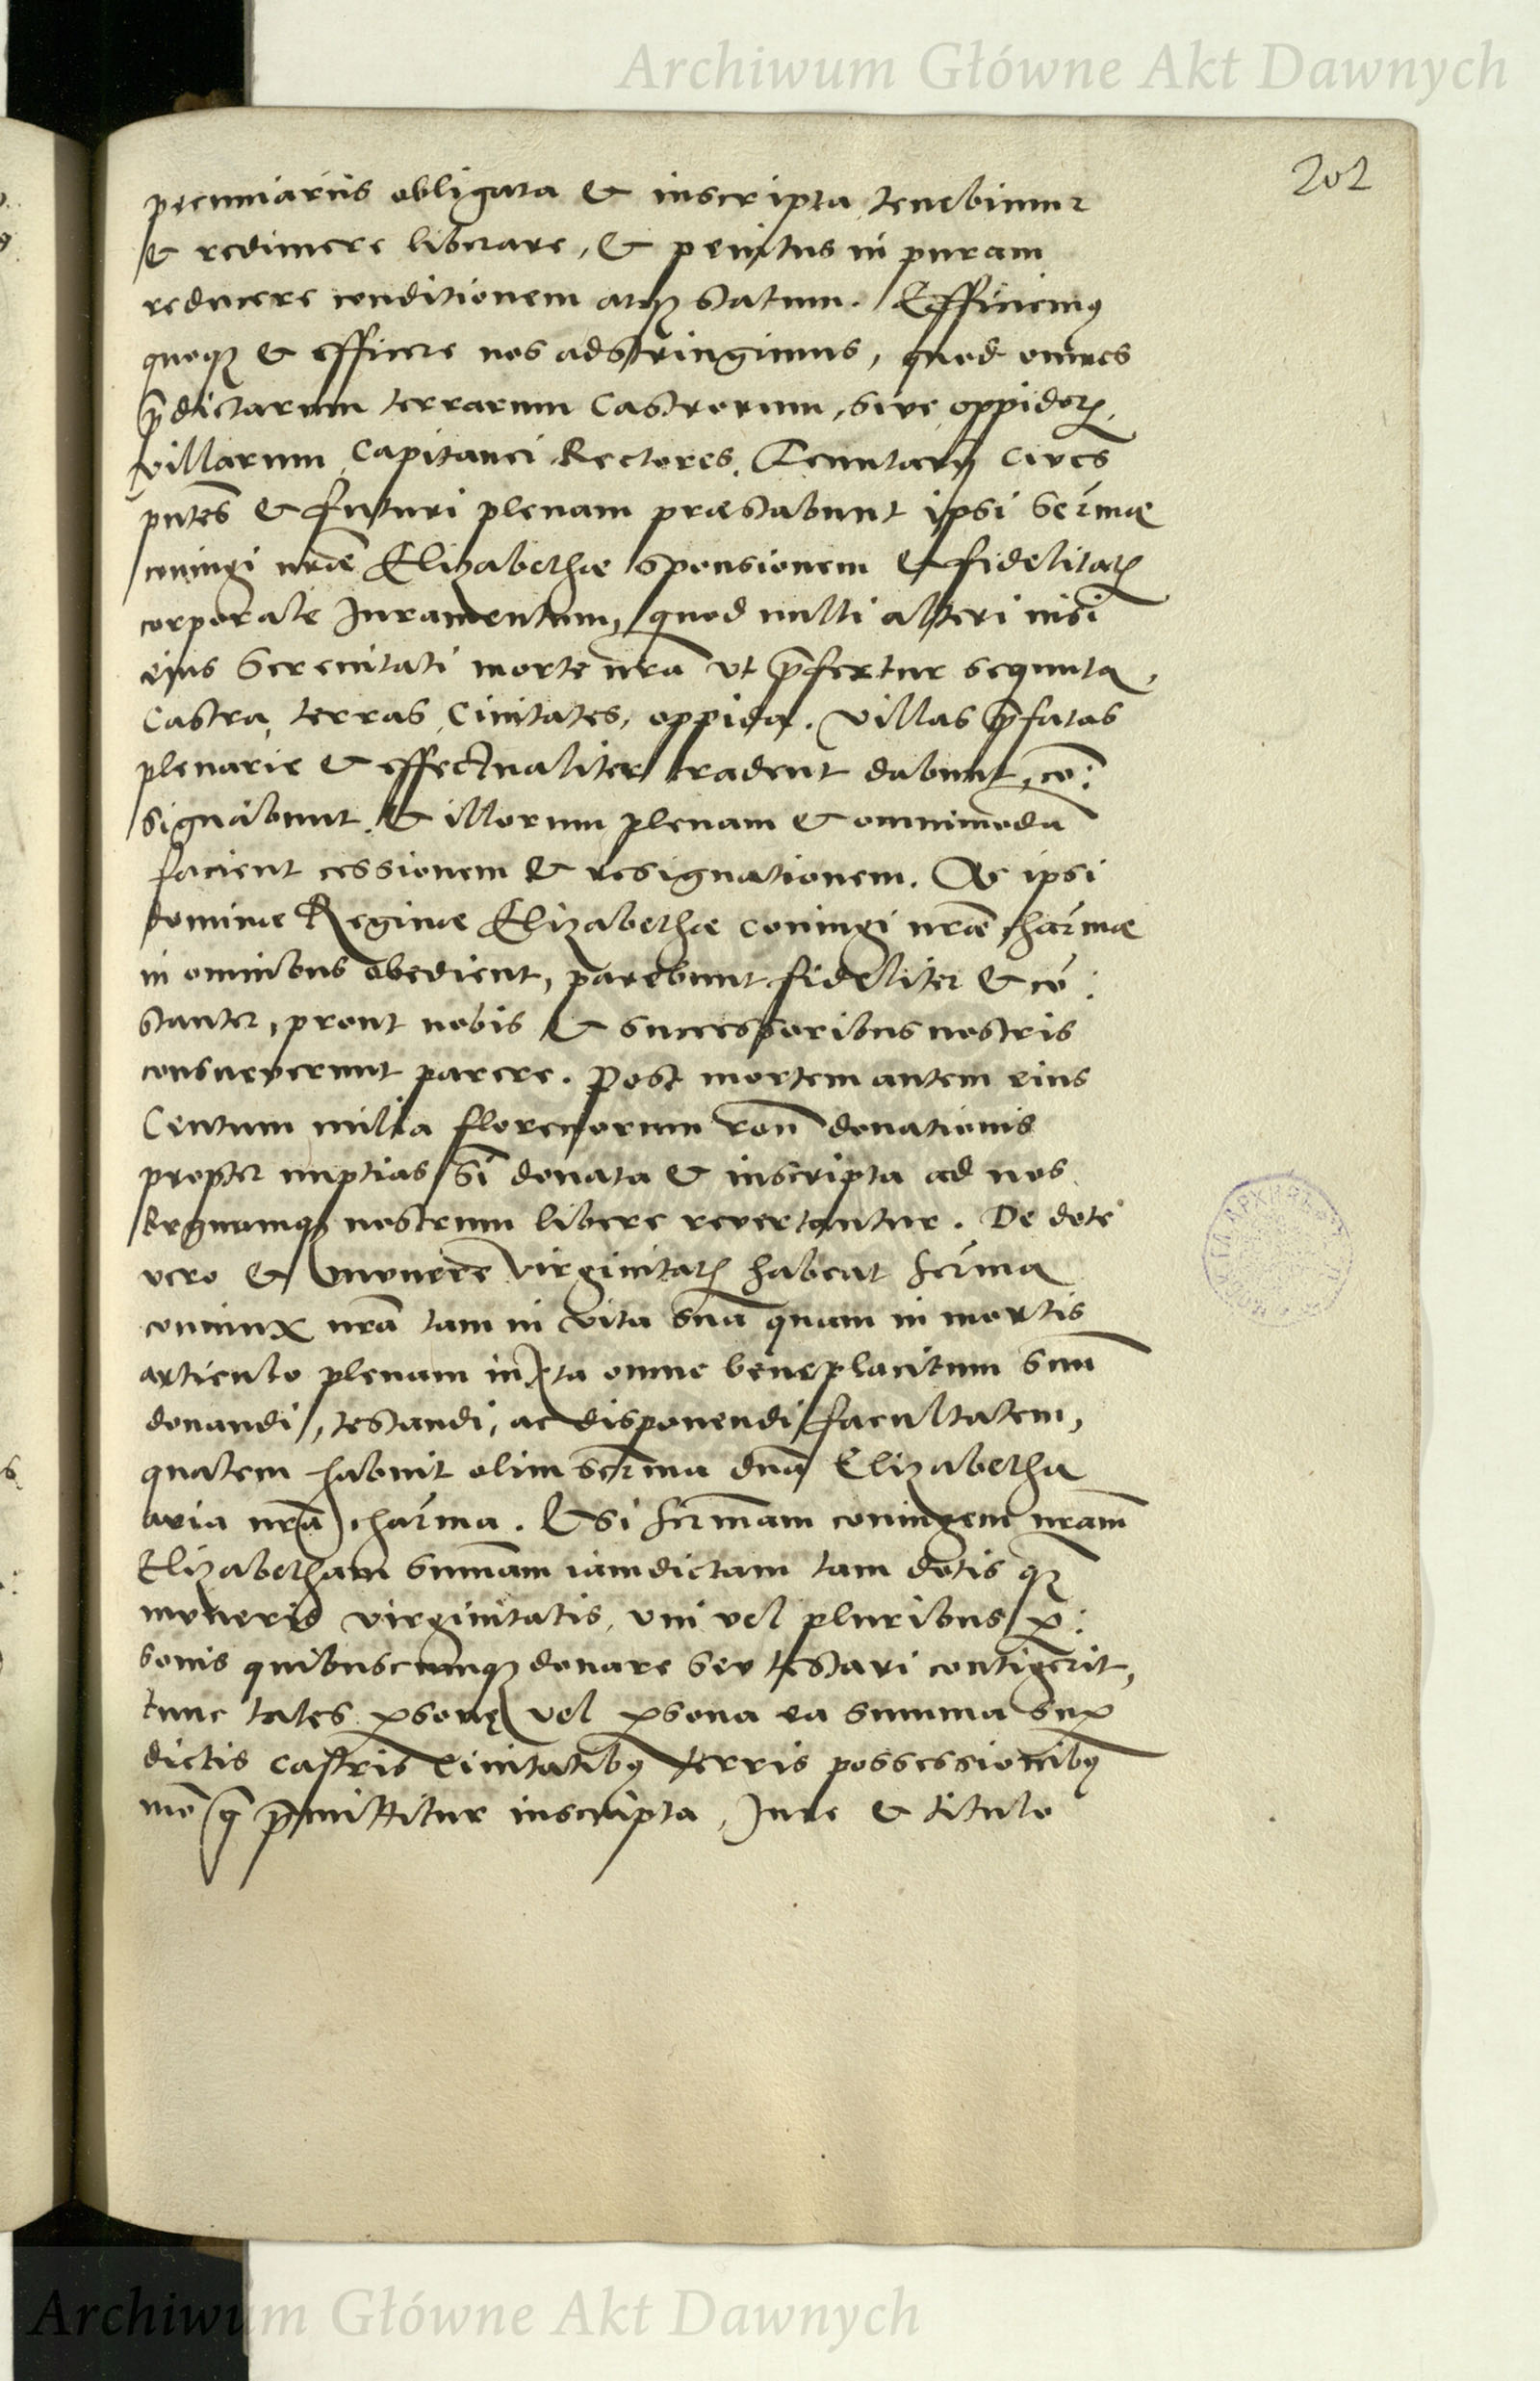 Archiwum Główne Akt Dawnych
202
pecuniariis obligata & inscripta tenebimur
& redimere liberare, & penitus in puram
reducere conditionem atq̃ statum. Efficiemus
quoq̃ & efficere nos adstringimus, quod omnes
p̃dictarum terrarum Castrorum, sive oppidorꝝ,
villarum, Capitanei Rectores, Tenutarii Cives
pñtes & futuri plenam praestabunt ipsi Serᵐᵃᵉ
coniugi nr̃ae Elizabethae sponsionem & fidelitatꝭ
corporale Juramentum, quod nulli alteri nisi
eius Serenitati morte nrã ut p̃fertur sequuta,
Castra, terras, Civitates, oppida, villas p̃fatas
plenarie & effectualiter tradent dabunt, cõ:
signabunt, & illorum plenam & omnimodã
facient cessionem & resignationem. Ac ipsi
dominae Reginae Elizabethae coniugi nr̃ae charᵐᵃᵉ
in omnibus obedient, parebunt fideliter & cõ:
stanter, prout nobis & successoribus nostris
consueverunt parere. Post mortem autem eius
Centum milia florenorum roñ donationis
propter nuptias sĩ donata & inscripta ad nos
Regnumq̃ nostrum libere revertantur. De dote
vero & munere virginitatꝭ habeat Serᵐᵃ
coniunx nrã tam in vita suã quam in mortis
articulo plenam iuxta omne beneplacitum suũ
donandi, testandi, ac disponendi facultatem,
qualem habuit olim serᵐᵃ dnã Elizabetha
avia nrã charᵐᵃ. Et si serᵐᵃᵐ coniugem nrãm
Elizabetham summam iamdictam tam dotis q̃
muneris virginitatis, uni vel pluribus ꝑ:
sonis quibuscunq̃ donare seu testari contigerit,
tunc tales ꝑsonę vel ꝑsona ea summa suꝑ
dictis castris civitatibus terris possessionibus
mõ q̃ p̃mittitur inscripta, Jure & titulo
Archiwum Główne Akt Dawnych